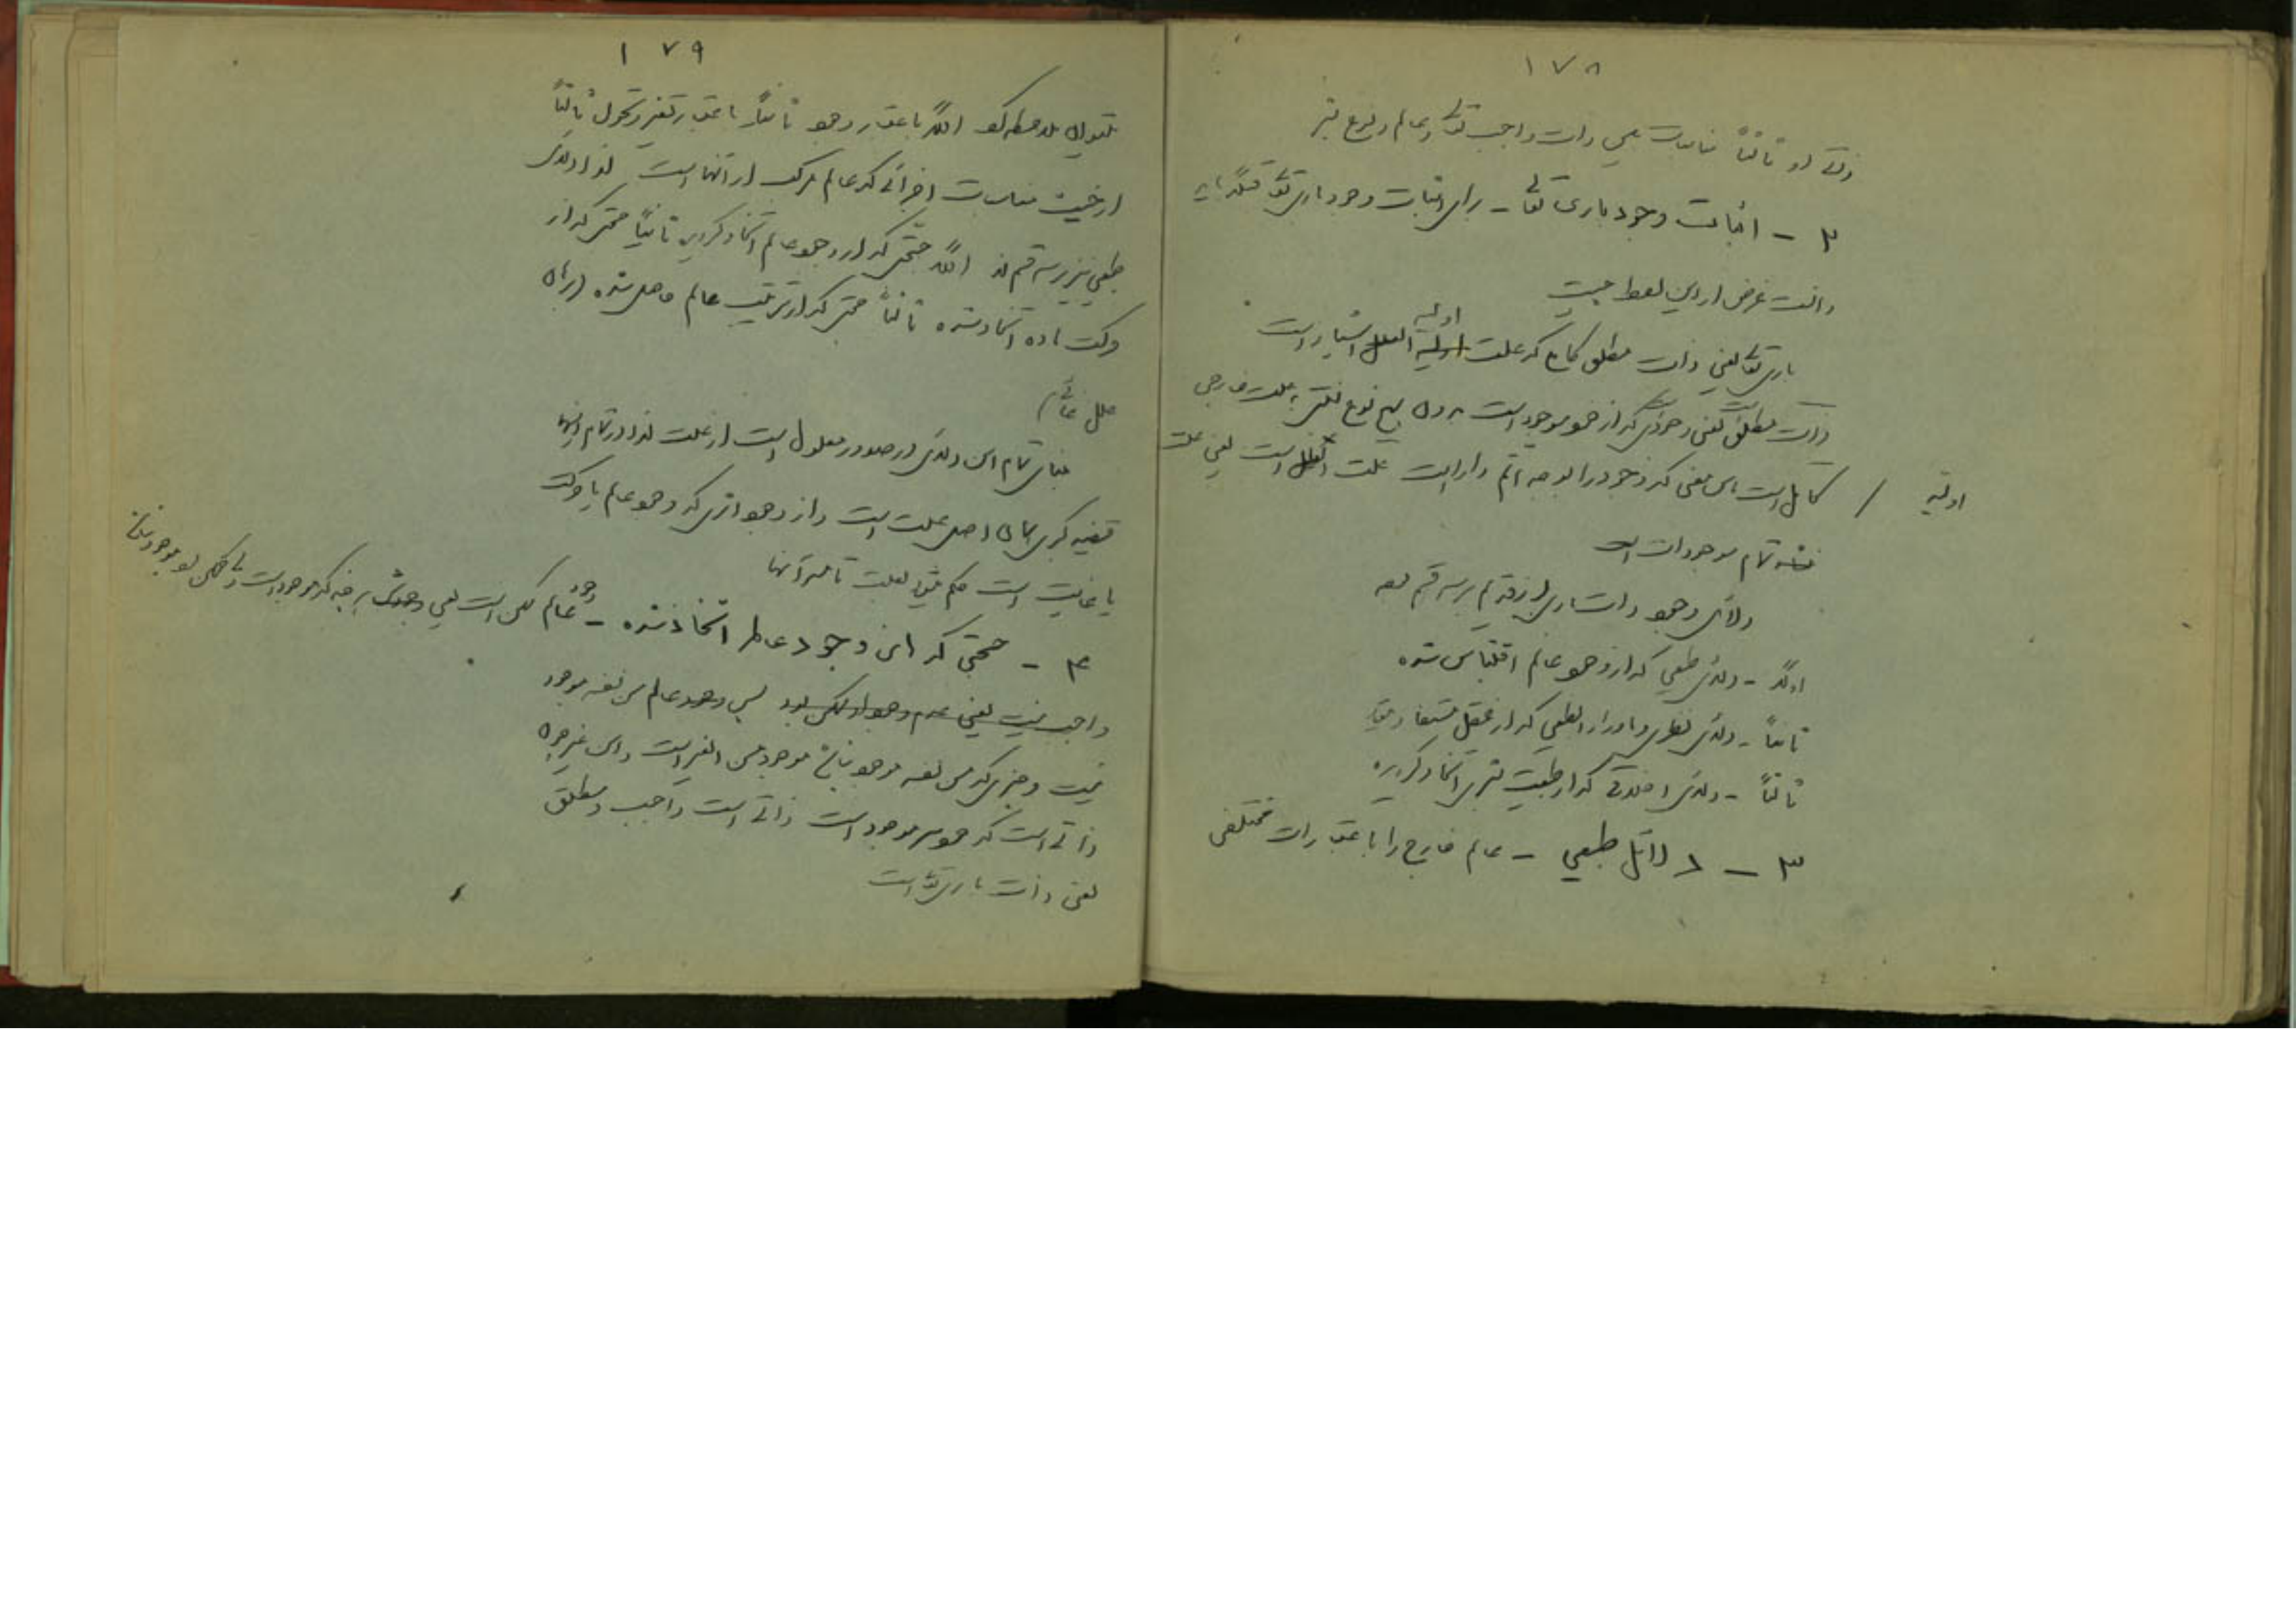 ۱۷۸
ذات او ثالثاً مناسبات بین ذات واجب تعالی و عالم و نوع بشر
۲ - اثبات وجود باری تعالی - برای اثبات وجود باری تعالی قبلاً باید
دانست غرض از این لفظ چیست
باری تعالی یعنی ذات مطلق کامل که علت اولیه اشیاء است
ذات مطلق یعنی وجودی که از خود موجود است بدون هیچ نوع تعلق به علت خارجی
کامل است باین معنی که وجود را بوجه اتم داراست علت اولیه است یعنی علت
منشاء تمام موجودات است
دلائل وجود ذات باری از قدیم بر سه قسم بوده
اولاً - دلائل طبیعی که از وجود عالم اقتباس شده
ثانیاً - دلائل نظری و ماوراء الطبیعی که از عقل مستفاد
ثالثاً - دلائل اخلاقی که از طبیعت بشری اتخاذ گردیده
۳ - دلائل طبیعی - عالم خارج را باعتبارات مختلفی
۱۷۹
میتوان ملاحظه کرد اولاً باعتبار وجود ثانیاً باعتبار تغیر و تحول ثالثاً
از حیث مناسبات اجزائی که عالم مرکب از آنها است لذا دلائل
طبیعی نیز بر سه قسم اند اولاً حجتی که از وجود عالم اتخاذ گردیده ثانیاً حجتی که از
حرکت ماده اتخاذ شده ثالثاً حجتی که از ترتیب عالم حاصل شده (برهان
علل غائی)
مبنای تمام این دلائل از صدور معلول است از علت لذا در تمام اینها
قضیه کبری همان اصل علت است و از وجود اثری که وجود عالم یا حرکت
یا غایت است حکم میشود بعلت تامه آنها
۴ - حجتی که از وجود عالم اتخاذ شده - وجود عالم ممکن است یعنی وجودش برغم که موجود است ممکن بود موجود نباشد
واجب نیست یعنی عدم وجود او ممکن بود پس وجود عالم من نفسه موجود
نیست و چیزی که من نفسه موجود نباشد موجود من الغیر است و این غیر چون
ذاتی است که خود موجود است ذاتی است واجب و مطلق
یعنی ذات باری تعالی است